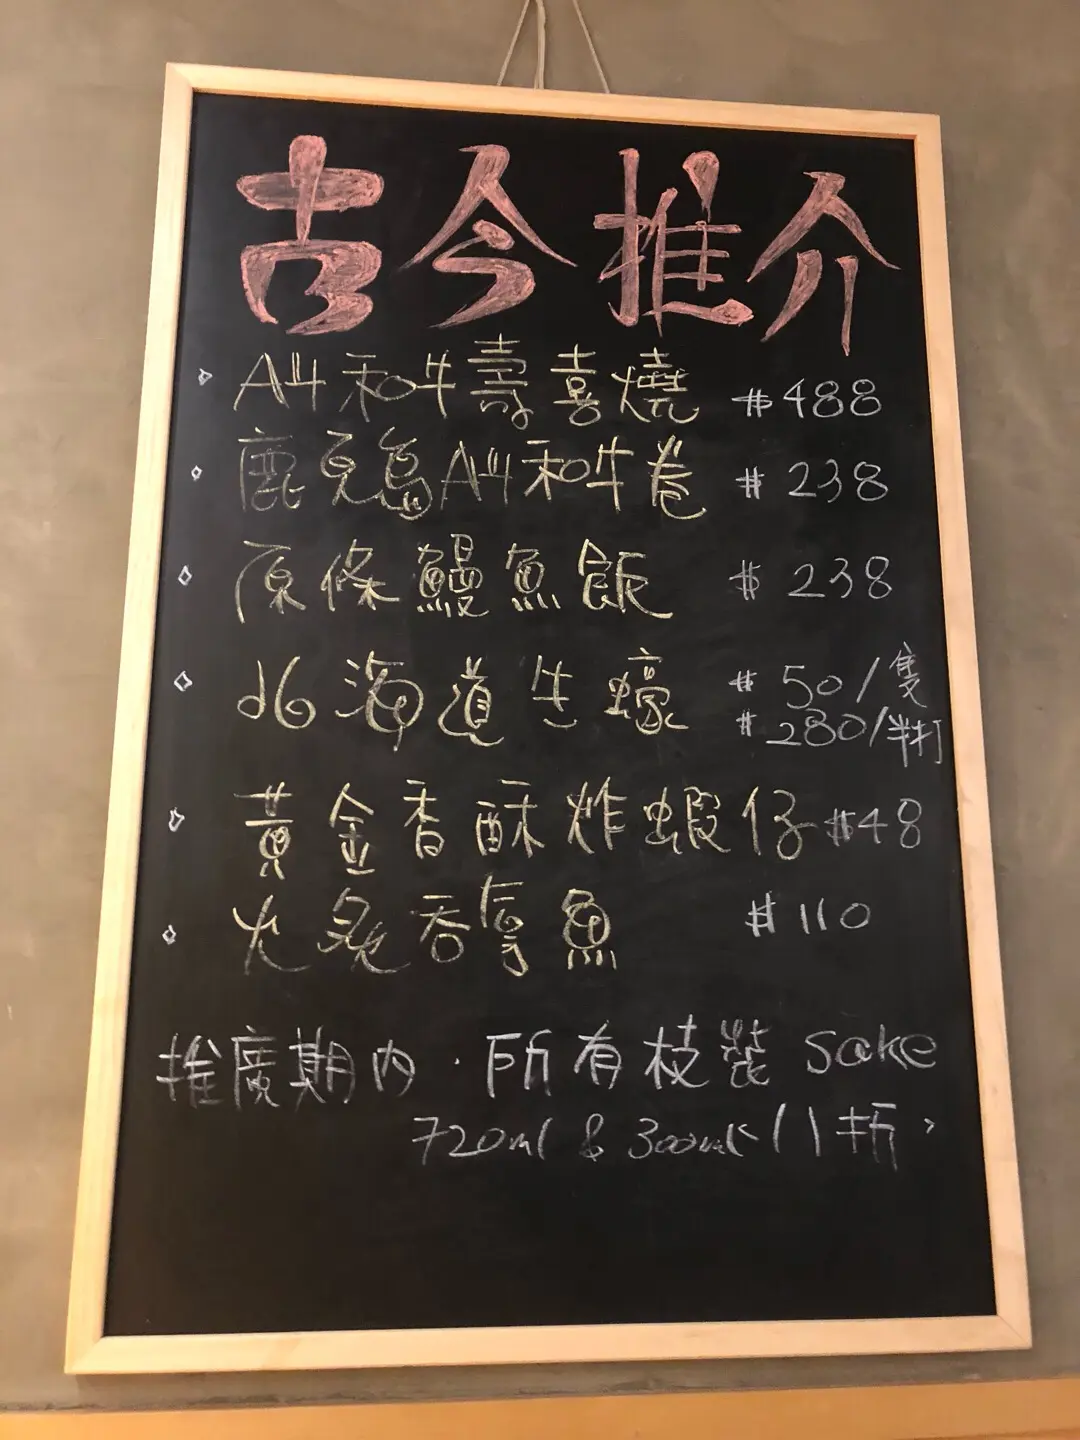 古今推介
A4和牛壽喜燒 $488
鹿兒島A4和牛卷 $238
原條鰻魚飯 $238
北海道生蠔 $50/隻
$280/半打
黃金香酥炸蝦仔 $48
火炙吞拿魚 $110
推廣期內，所有枝裝 Sake
720ml & 300ml 八折，